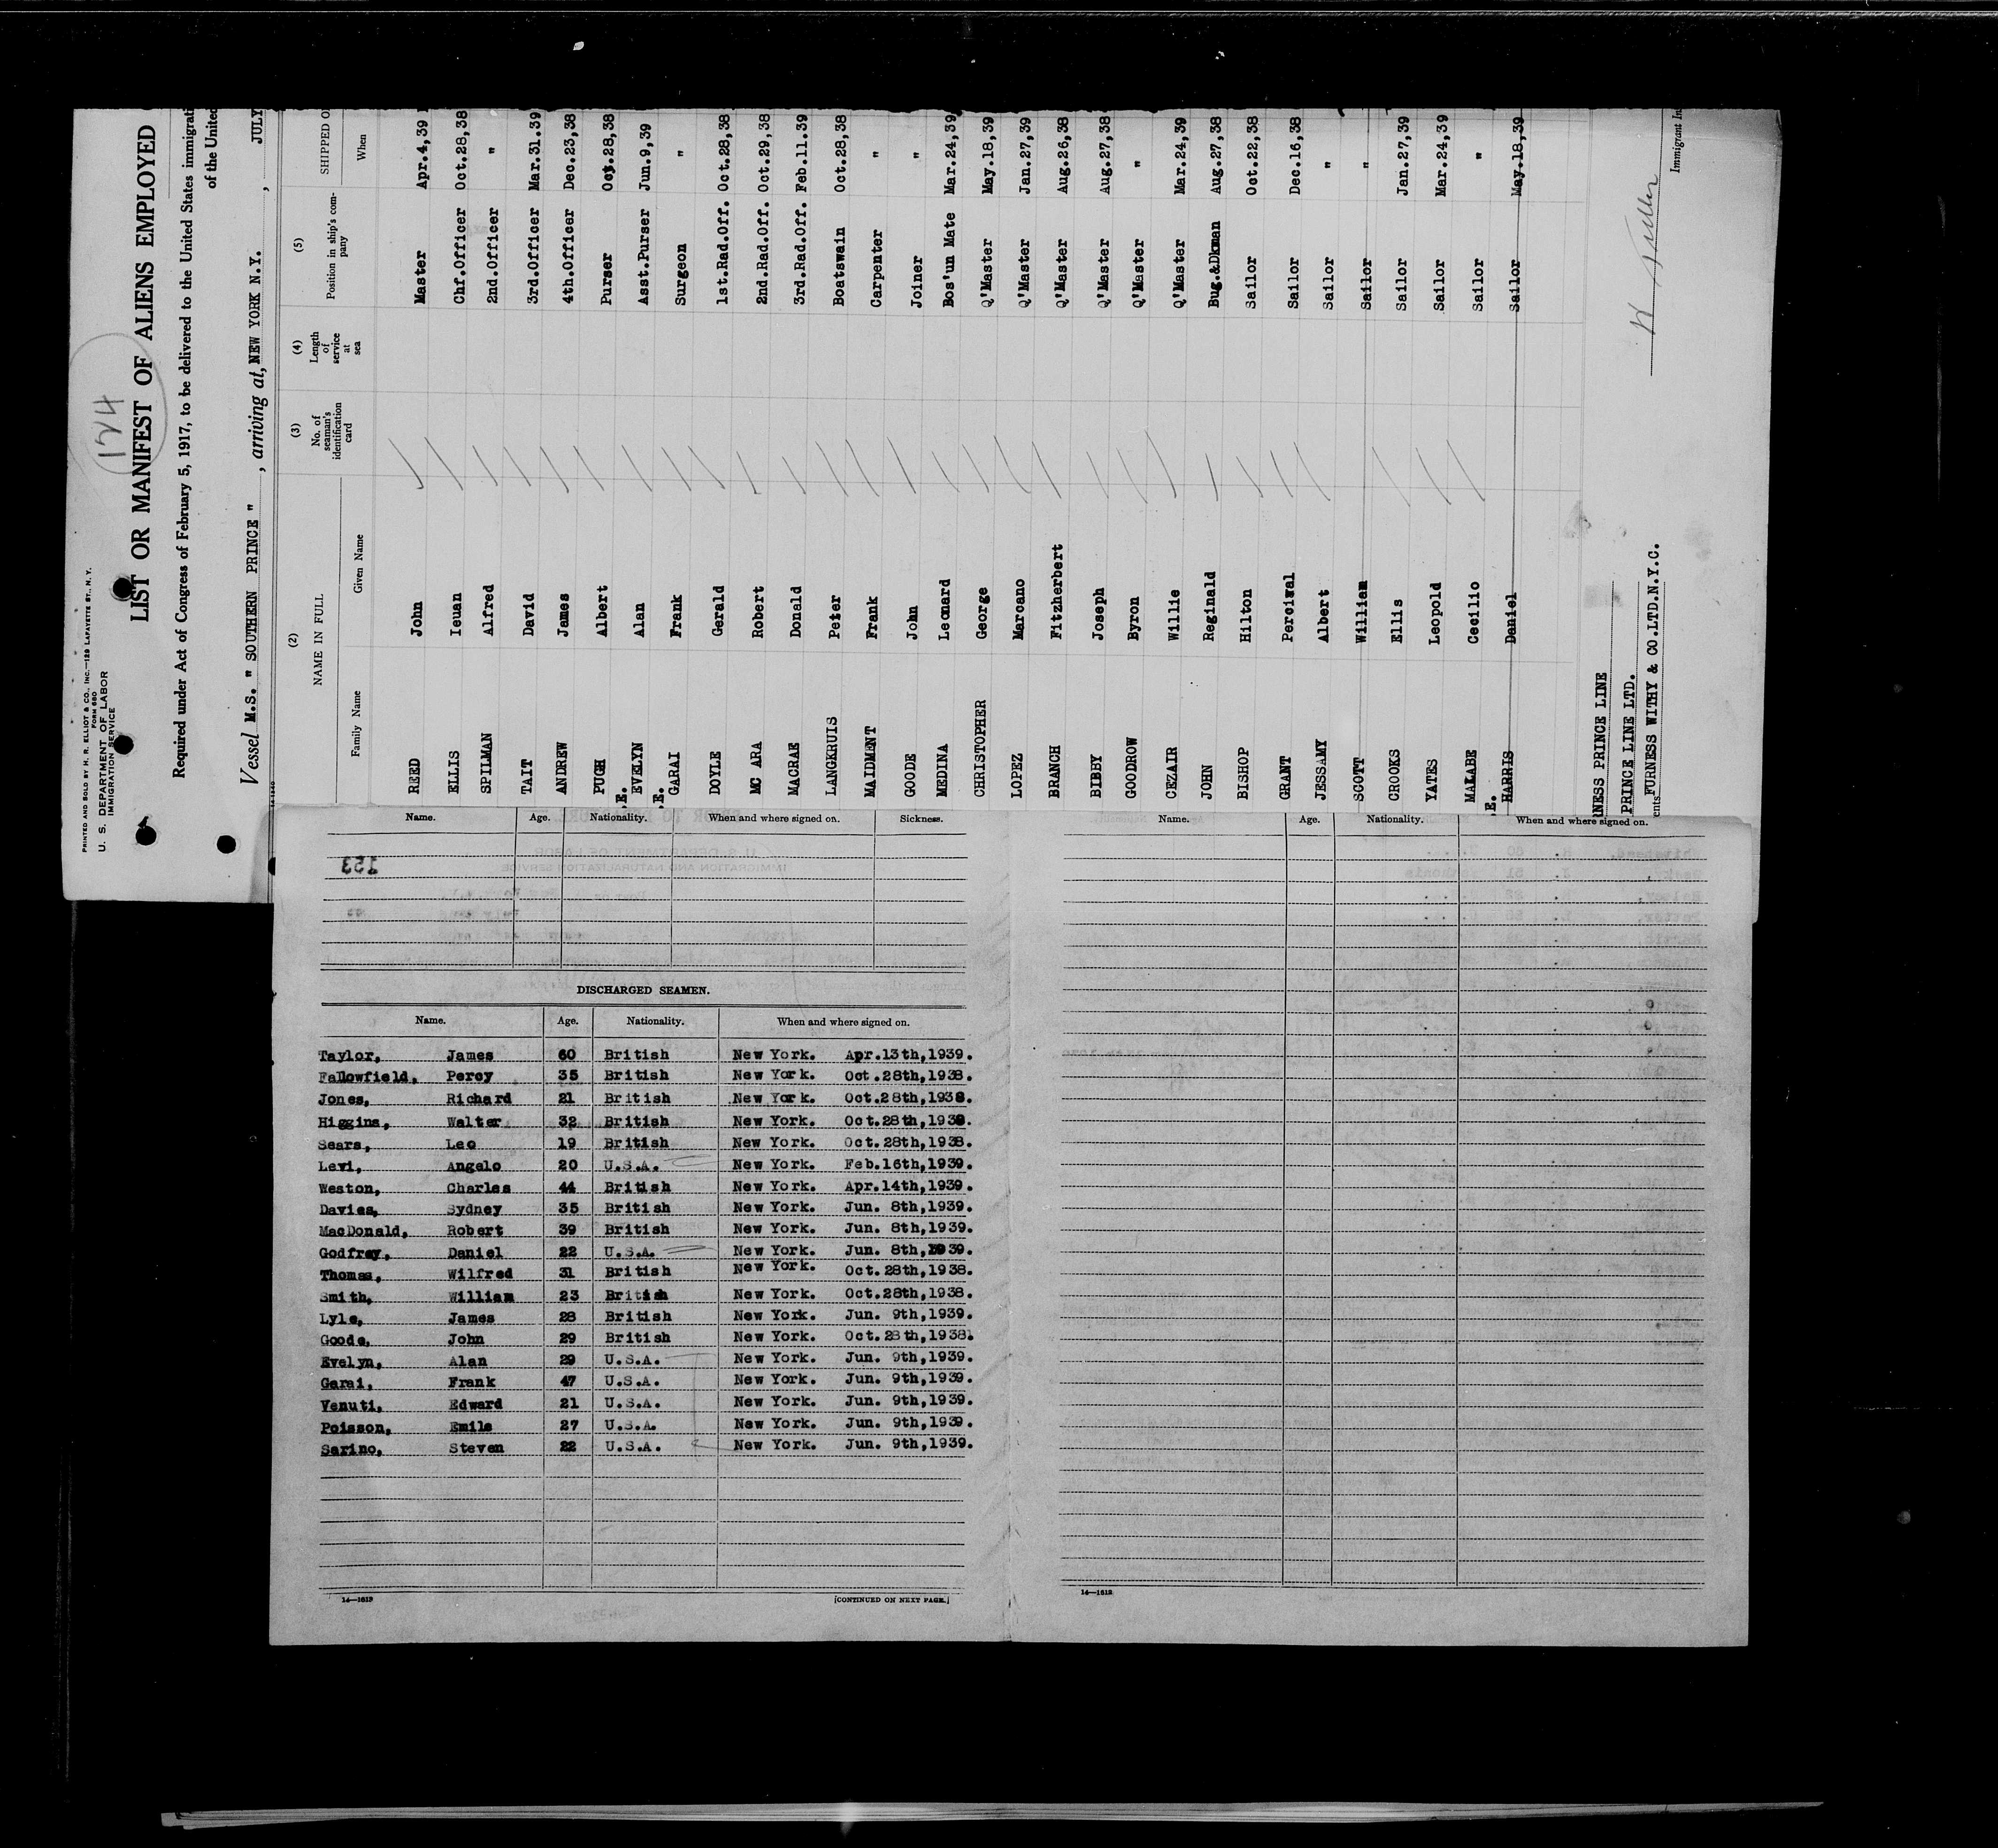 PRINTED AND SOLD BY H. R. ELLIOT & CO., INC.—129 LAFAYETTE ST., N. Y.
FORM 680
U. S. DEPARTMENT OF LABOR
IMMIGRATION SERVICE
124
LIST OR MANIFEST OF ALIENS EMPLOYED
Required under Act of Congress of February 5, 1917, to be delivered to the United States immigrat
of the United
Vessel M.S. " SOUTHERN PRINCE " , arriving at, NEW YORK N.Y. , JULY
(2) (3) (4) (5)
NAME IN FULL No. of seaman's identification card Length of service at sea Position in ship's company SHIPPED O
Family Name Given Name When
REED John Master Apr.4,39
ELLIS Ieuan Chf.Officer Oct.28,38
SPILMAN Alfred 2nd.Officer "
TAIT David 3rd.Officer Mar.31.39
ANDREW James 4th.Officer Dec.23,38
PUGH Albert Purser Oct.28,38
.E. EVELYN Alan Asst.Purser Jun.9,39
.E. GARAI Frank Surgeon "
DOYLE Gerald 1st.Rad.Off. Oct.28,38
MC ARA Robert 2nd.Rad.Off. Oct.29,38
MACRAE Donald 3rd.Rad.Off. Feb.11.39
LANGKRUIS Peter Boatswain Oct.28,38
MAIDMENT Frank Carpenter "
GOODE John Joiner "
MEDINA Leonard Bos'un Mate Mar.24,39
CHRISTOPHER George Q'Master May.18,39
LOPEZ Marcano Q'Master Jan.27,39
BRANCH Fitzherbert Q'Master Aug.26,38
BIBBY Joseph Q'Master Aug.27,38
GOODROW Byron Q'Master "
CEZAIR Willie Q'Master Mar.24,39
JOHN Reginald Bug.&Dkman Aug.27,38
BISHOP Hilton Sailor Oct.22,38
GRANT Percival Sailor Dec.16,38
JESSAMY Albert Sailor "
SCOTT William Sailor "
CROOKS Ellis Sailor Jan.27,39
YATES Leopold Sailor Mar.24,39
MALABE Cecilio Sailor "
.E. HARRIS Daniel Sailor May.18,39
NESS PRINCE LINE
PRINCE LINE LTD.
ents FURNESS WITHY & CO.LTD.N.Y.C.
Immigrant In
Name. Age. Nationality. When and where signed on. Sickness.
153
DISCHARGED SEAMEN.
Name. Age. Nationality. When and where signed on.
Taylor, James 60 British New York. Apr.13th,1939.
Fallowfield, Percy 35 British New York. Oct.28th,1938.
Jones, Richard 21 British New York. Oct.28th,1938.
Higgins, Walter 32 British New York. Oct.28th,1938.
Sears, Leo 19 British New York. Oct.28th,1938.
Levi, Angelo 20 U.S.A. New York. Feb.16th,1939.
Weston, Charles 44 British New York. Apr.14th,1939.
Davies, Sydney 35 British New York. Jun. 8th,1939.
MacDonald, Robert 39 British New York. Jun. 8th,1939.
Godfrey, Daniel 22 U.S.A. New York. Jun. 8th,1939.
Thomas, Wilfred 31 British New York. Oct.28th,1938.
Smith, William 23 British New York. Oct.28th,1938.
Lyle, James 28 British New York. Jun. 9th,1939.
Goode, John 29 British New York. Oct.28th,1938.
Evelyn, Alan 29 U.S.A. New York. Jun. 9th,1939.
Garai, Frank 47 U.S.A. New York. Jun. 9th,1939.
Venuti, Edward 21 U.S.A. New York. Jun. 9th,1939.
Poisson, Emile 27 U.S.A. New York. Jun. 9th,1939.
Sarino, Steven 22 U.S.A. New York. Jun. 9th,1939.
14—1613 [CONTINUED ON NEXT PAGE.]
Name. Age. Nationality. When and where signed on.
14—1613